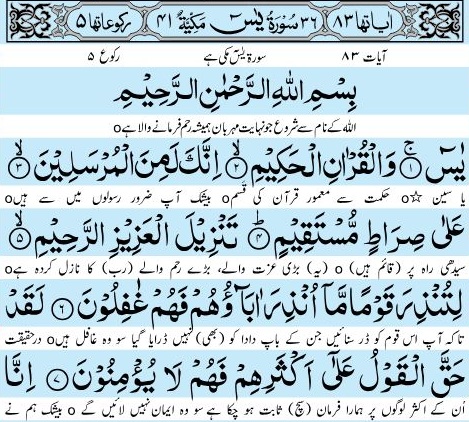 اٰیاتھا ۸۳ ۳۶ سُوْرَۃُ یٰسٓ مَکِّیَّۃٌ ۴۱ رکوعاتھا ۵
آیات ۸۳ سورۃ یٰس مکی ہے رکوع ۵
بِسْمِ اللّٰهِ الرَّحْمٰنِ الرَّحِيْمِ
اللہ کے نام سے شروع جو نہایت مہربان ہمیشہ رحم فرمانے والا ہے o
يٰسٓ ۚ﴿۱﴾ وَالْقُرْاٰنِ الْحَكِيْمِ ۙ﴿۲﴾ اِنَّكَ لَمِنَ الْمُرْسَلِيْنَ ۙ﴿۳﴾
یا سین ☆o حکمت سے معمور قرآن کی قسمo بیشک آپ ضرور رسولوں میں سے ہیںo
عَلٰى صِرَاطٍ مُّسْتَقِيْمٍ ؕ﴿۴﴾ تَنْزِيْلَ الْعَزِيْزِ الرَّحِيْمِ ۙ﴿۵﴾
سیدھی راہ پر (قائم ہیں) o (یہ) بڑی عزت والے، بڑے رحم والے (رب) کا نازل کردہ ہےo
لِتُنْذِرَ قَوْمًا مَّاۤ اُنْذِرَ اٰبَآؤُهُمْ فَهُمْ غٰفِلُوْنَ ﴿۶﴾ لَقَدْ
تاکہ آپ اس قوم کو ڈر سنائیں جن کے باپ دادا کو (بھی) نہیں ڈرایا گیا سو وہ غافل ہیںo درحقیقت
حَقَّ الْقَوْلُ عَلٰۤى اَكْثَرِهِمْ فَهُمْ لَا يُؤْمِنُوْنَ ﴿۷﴾ اِنَّا
اُن کے اکثر لوگوں پر ہمارا فرمان (سچ) ثابت ہو چکا ہے سو وہ ایمان نہیں لائیں گے o بیشک ہم نے